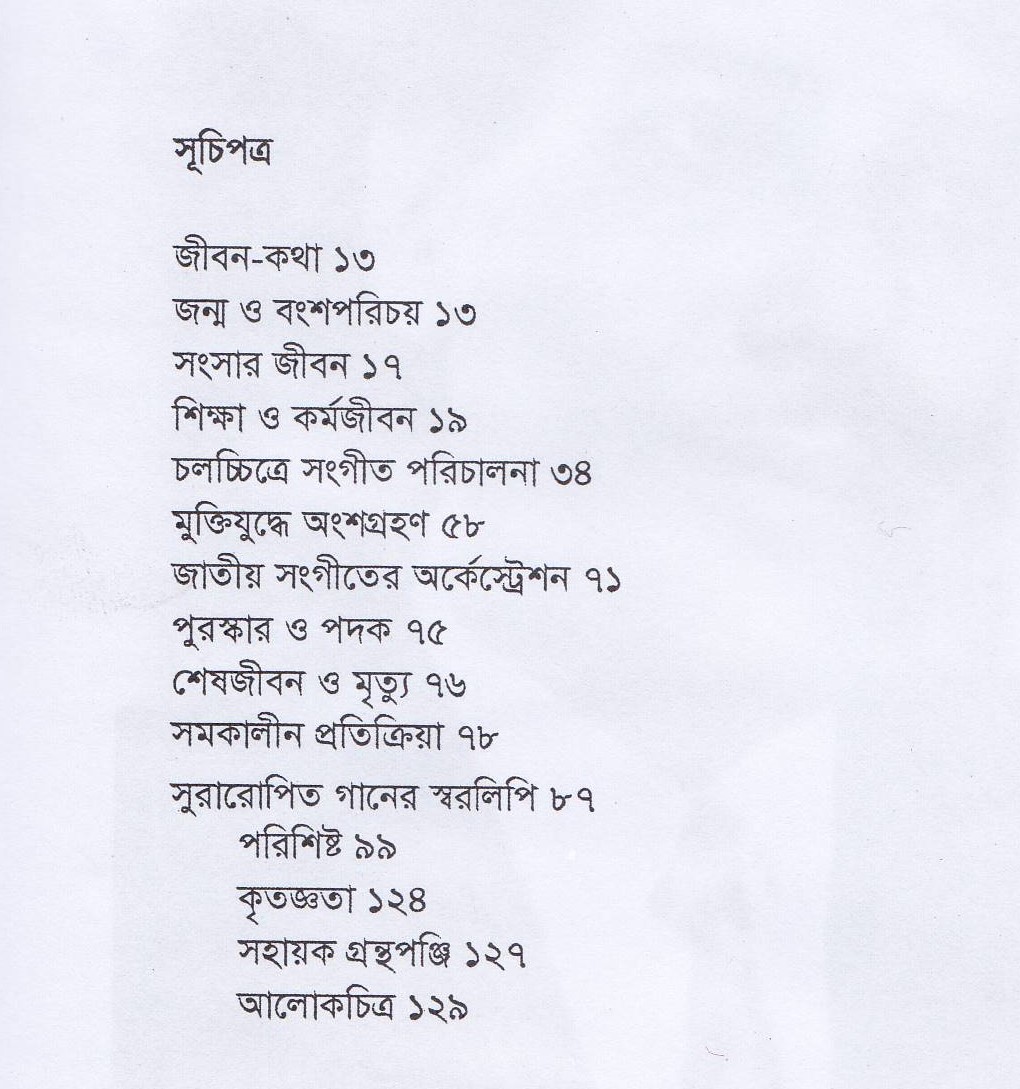 সূচিপত্র
জীবন-কথা ১৩
জন্ম ও বংশপরিচয় ১৩
সংসার জীবন ১৭
শিক্ষা ও কর্মজীবন ১৯
চলচ্চিত্রে সংগীত পরিচালনা ৩৪
মুক্তিযুদ্ধে অংশগ্রহণ ৫৮
জাতীয় সংগীতের অর্কেস্ট্রেশন ৭১
পুরস্কার ও পদক ৭৫
শেষজীবন ও মৃত্যু ৭৬
সমকালীন প্রতিক্রিয়া ৭৮
সুরারোপিত গানের স্বরলিপি ৮৭
পরিশিষ্ট ৯৯
কৃতজ্ঞতা ১২৪
সহায়ক গ্রন্থপঞ্জি ১২৭
আলোকচিত্র ১২৯